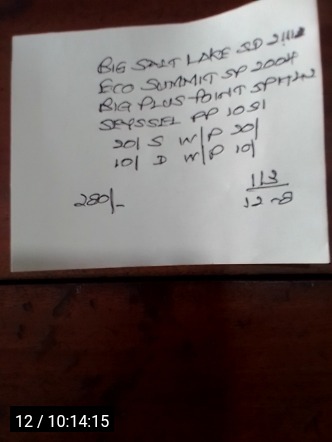 BIG SALT LAKE SD 2111
ECO SUMMIT SP 2004
BIG PLUS POINT SP
SEYSSEL PP 1021
20/ S W/P 20/
10/ D W/P 10/
280/-
113
12
12 / 10:14:15